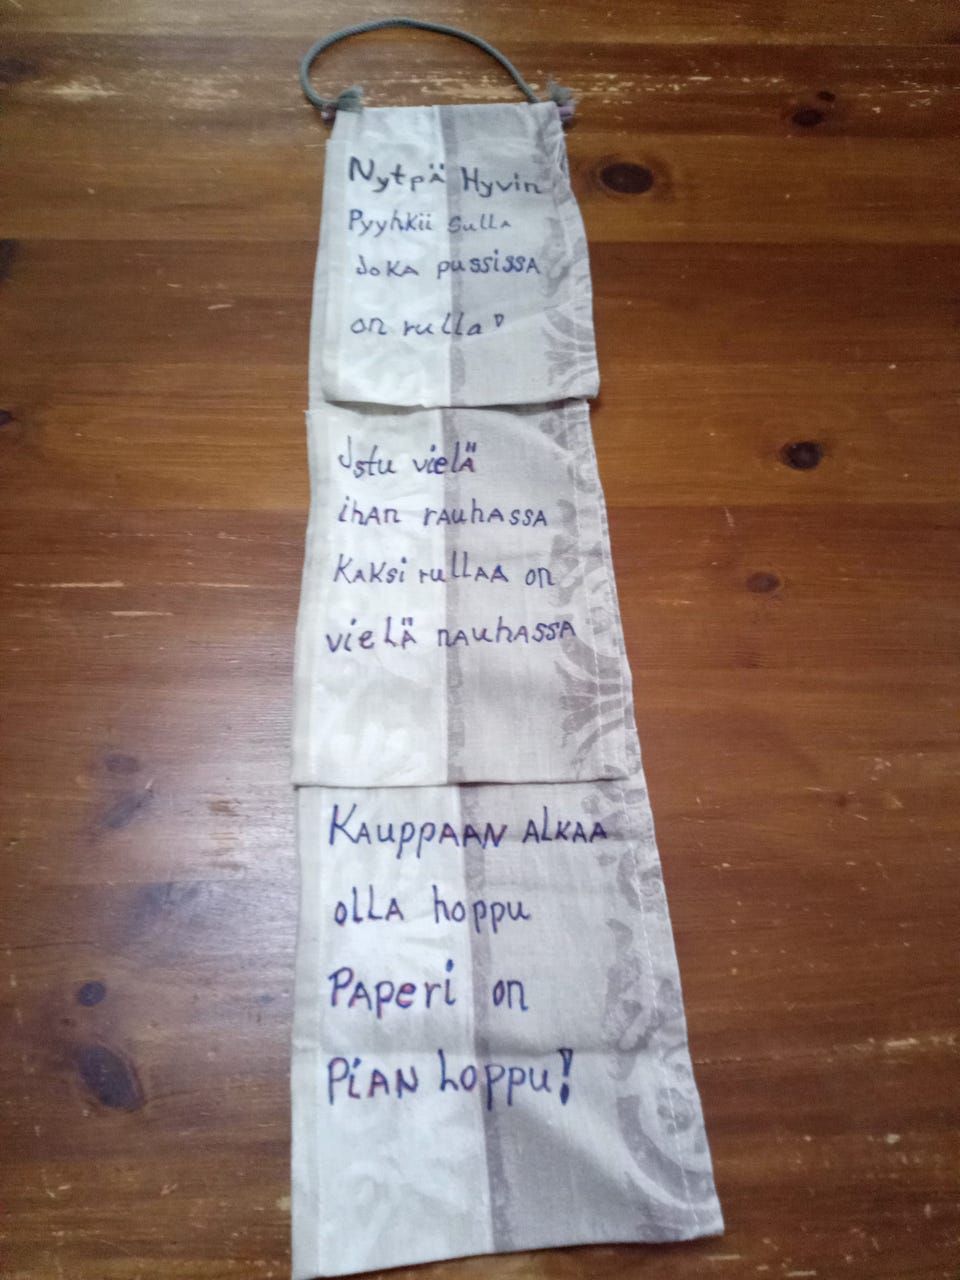 Nytpä Hyvin
Pyyhkii Sulla
Joka pussissa
on rulla!
Istu vielä
ihan rauhassa
Kaksi rullaa on
vielä nauhassa
Kauppaan alkaa
olla hoppu
Paperi on
Pian hoppu!